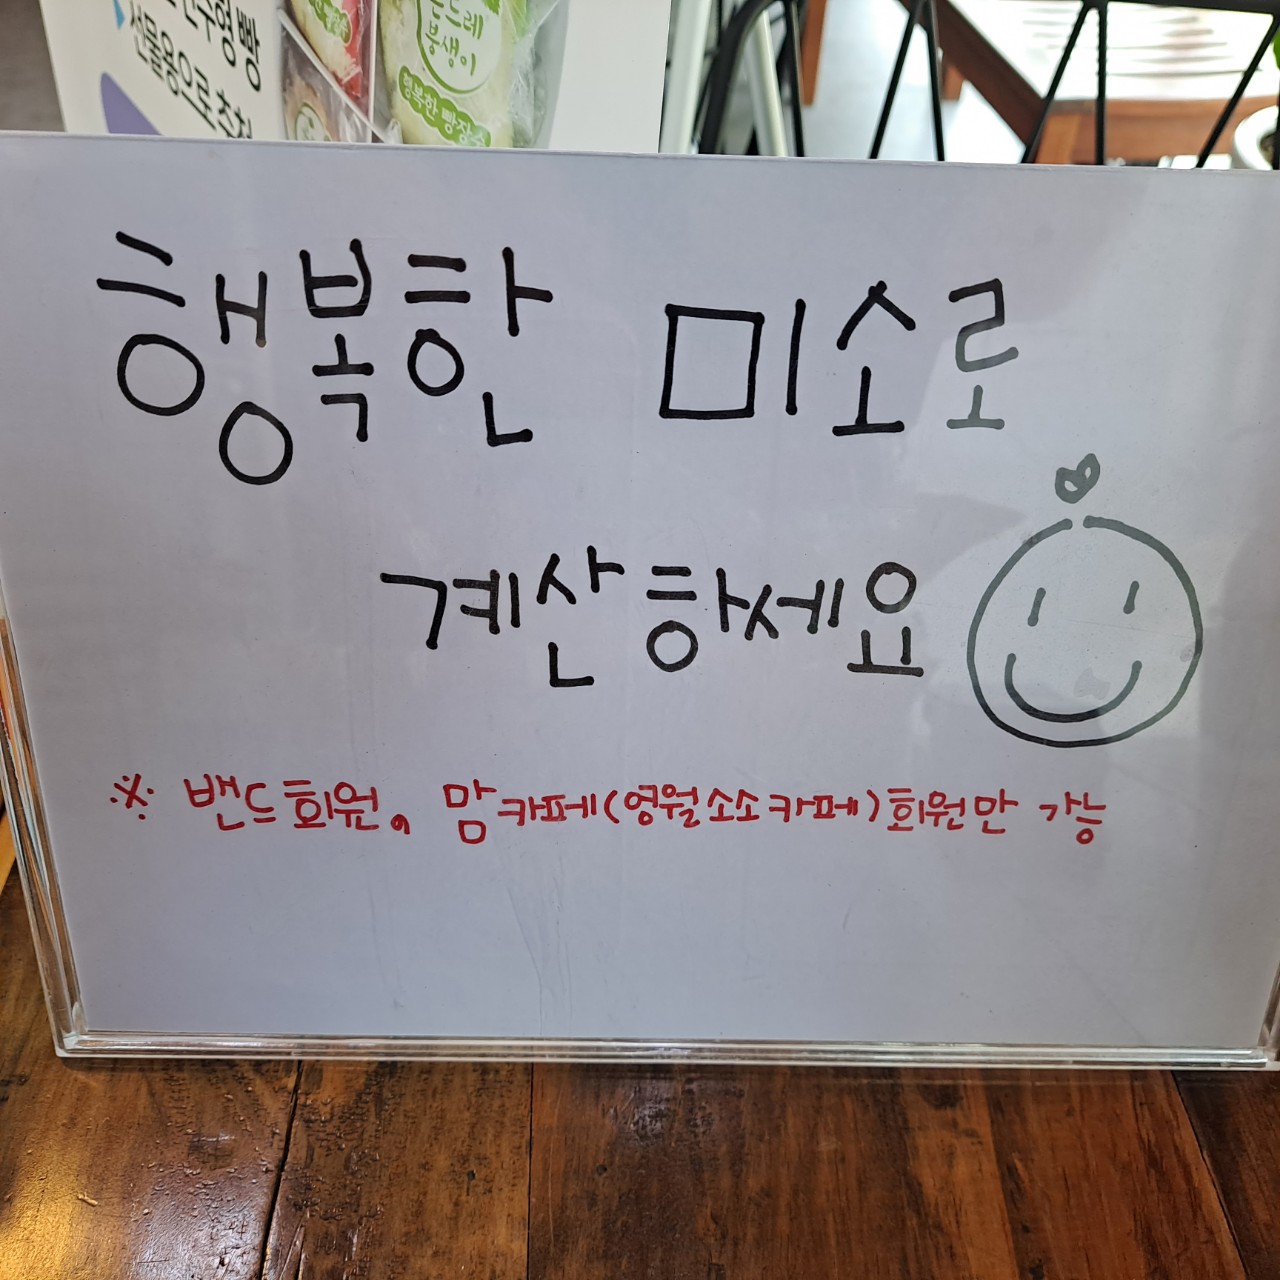 형빵
선물용으로 추천
곤드레
붕생이
행복한 빵장수
행복한 미소로
계산하세요
※ 밴드회원, 맘카페(영월소소카페)회원만 가능